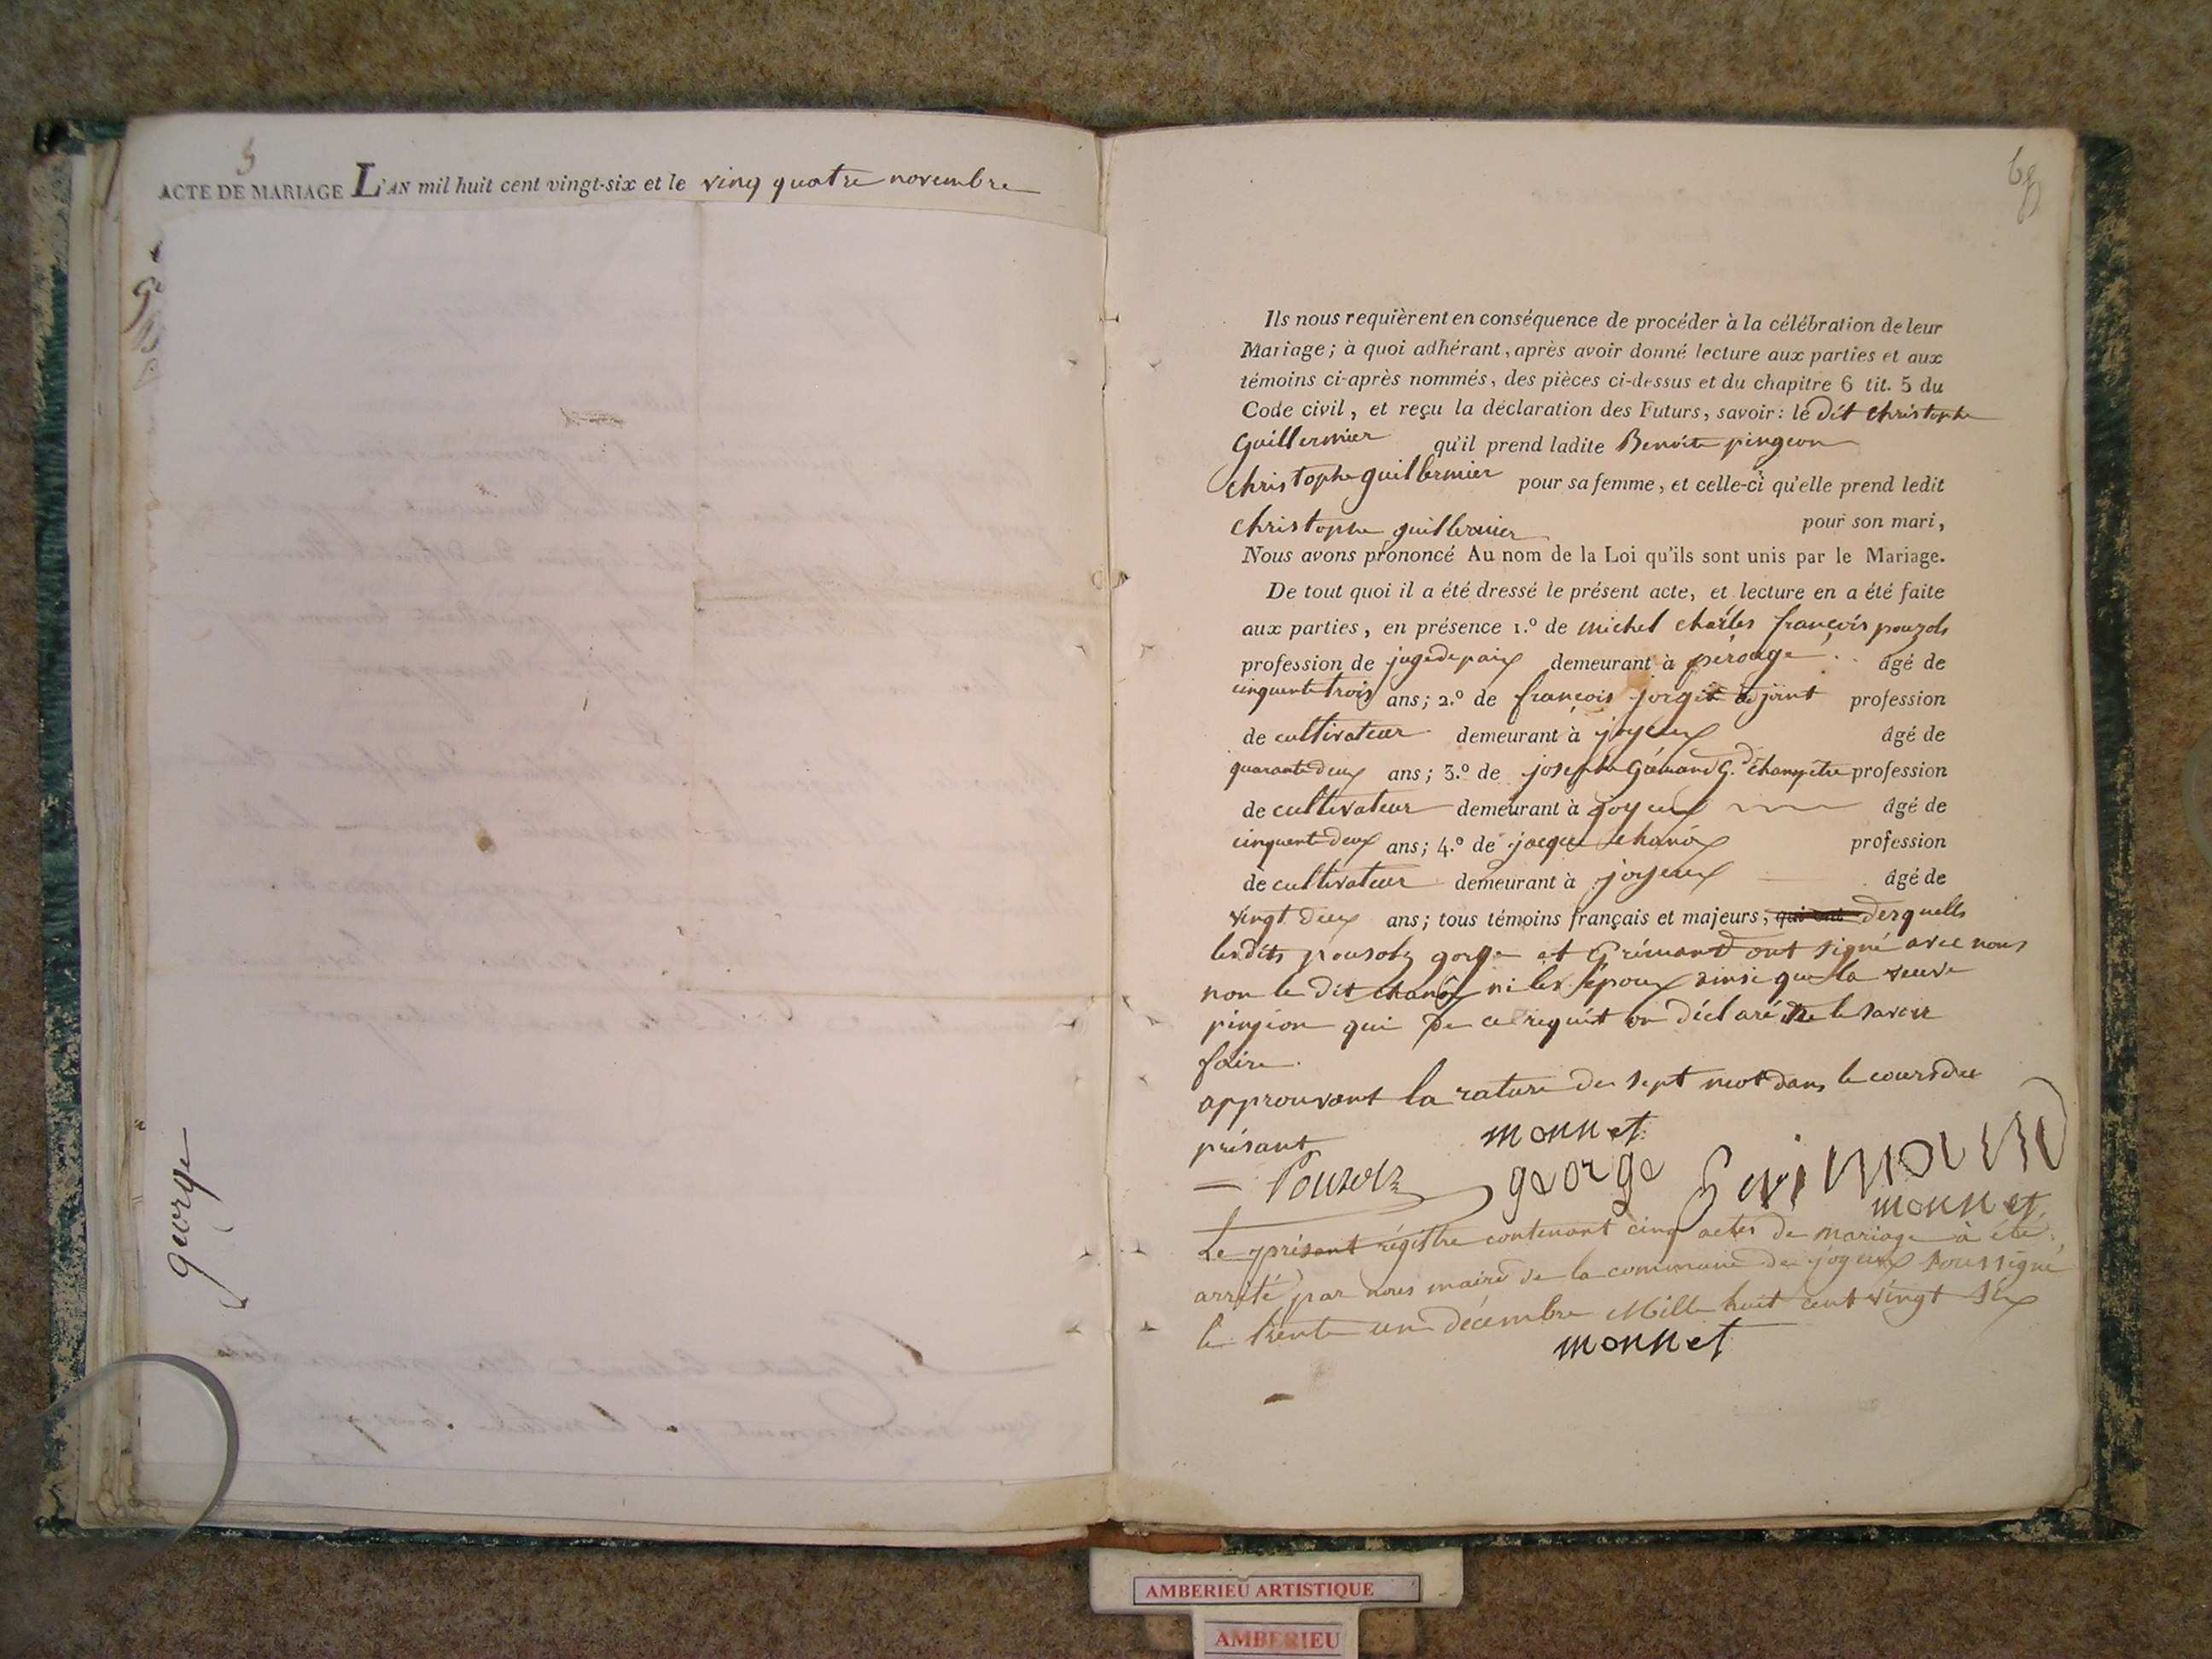 5
ACTE DE MARIAGE L'AN mil huit cent vingt-six et le ving quatre novembre
george
68
Ils nous requièrent en conséquence de procéder à la célébration de leur
Mariage; à quoi adhérant, après avoir donné lecture aux parties et aux
témoins ci-après nommés, des pièces ci-dessus et du chapitre 6 tit. 5 du
Code civil, et reçu la déclaration des Futurs, savoir: le dit christophe
Guillermier qu'il prend ladite Benoite pingeon
christophe guillermier pour sa femme, et celle-ci qu'elle prend ledit
christophe guillermier pour son mari,
Nous avons prononcé Au nom de la Loi qu'ils sont unis par le Mariage.
De tout quoi il a été dressé le présent acte, et lecture en a été faite
aux parties, en présence 1.º de michel charles françois pouzols
profession de juge de paix demeurant à pérouge âgé de
cinquente trois ans; 2.º de françois jorge adjoint profession
de cultivateur demeurant à joyeux âgé de
quarante deux ans; 3.º de joseph Grimand G.de champetre profession
de cultivateur demeurant à joyeux âgé de
cinquente deux ans; 4.º de jacque chanôx profession
de cultivateur demeurant à joyeux âgé de
vingt deux ans; tous témoins français et majeurs, qui ont desquells
lesdits pousolz gorge et Grimand ont signé avec nous
non le dit chanôx ni les époux ainsi que la veuve
pingion qui de ce requit on déclaré ne le savoir
faire.
approuvant la rature de sept mot dans le cours du
présant
monnet
Pouzolz george Grimand
monnet
Le présant régistre contenant cinq actes de mariage à été
arrété par nous maire de la commune de joyeux soussigné
le trente un décembre Mille huit cent vingt six
monnet
AMBERIEU ARTISTIQUE
AMBERIEU